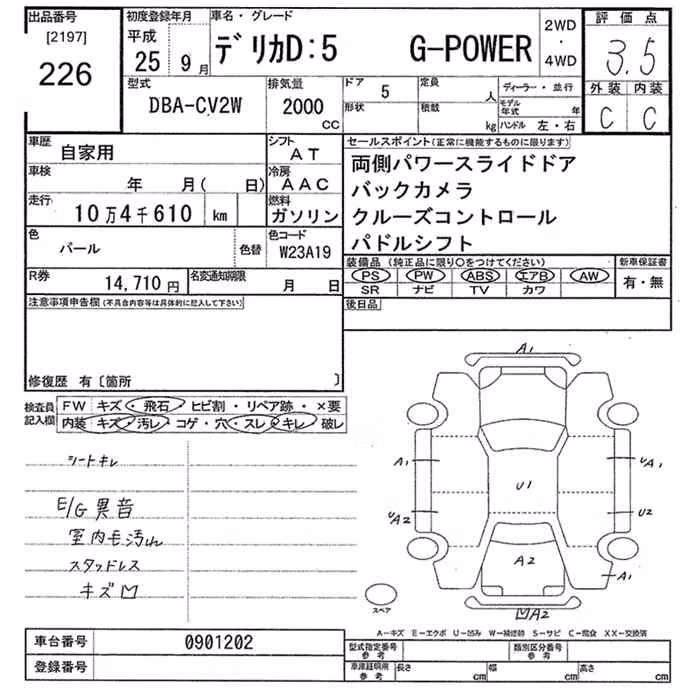 出品番号
[2197]
226
初度登録年月
平成
25 9月
車名・グレード
デリカD:5 G-POWER
2WD
・
4WD
評価点
3.5
外装 内装
C C
型式
DBA-CV2W
排気量
2000
CC
ドア 5
形状
定員 人
積載 kg
ディーラー・並行
モデル年式 年
ハンドル 左・右
車歴 自家用
シフト AT
車検 年 月( 日)
冷房 AAC
走行 10万4千610 km
燃料 ガソリン
色 パール 色替
色コード W23A19
R券 14,710円
名変通知期限 月 日
セールスポイント(正常に機能するものに限ります)
両側パワースライドドア
バックカメラ
クルーズコントロール
パドルシフト
装備品(純正品に限り○をつけてください)
PS PW ABS エアB AW
SR ナビ TV カワ
新車保証書
有・無
後日品
注意事項申告欄(不具合内容等は具体的に記入して下さい)
修復歴 有〔箇所 〕
検査員記入欄
FW キズ・飛石・ヒビ割・リペア跡・×要
内装 キズ・汚レ・コゲ・穴・スレ・キレ・破レ
シートキレ
E/G異音
室内毛汚れ
スタッドレス
キズ凹
A1
A1
UA1
U1
UA2
U2
A2
A1
凹A2
スペア
A-キズ E-エクボ U-凹み W-補修跡 S-サビ C-腐食 XX-交換済
車台番号 0901202
登録番号
型式指定番号 参考
類別区分番号 参考
車庫証明用 参考
長さ cm
幅 cm
高さ cm